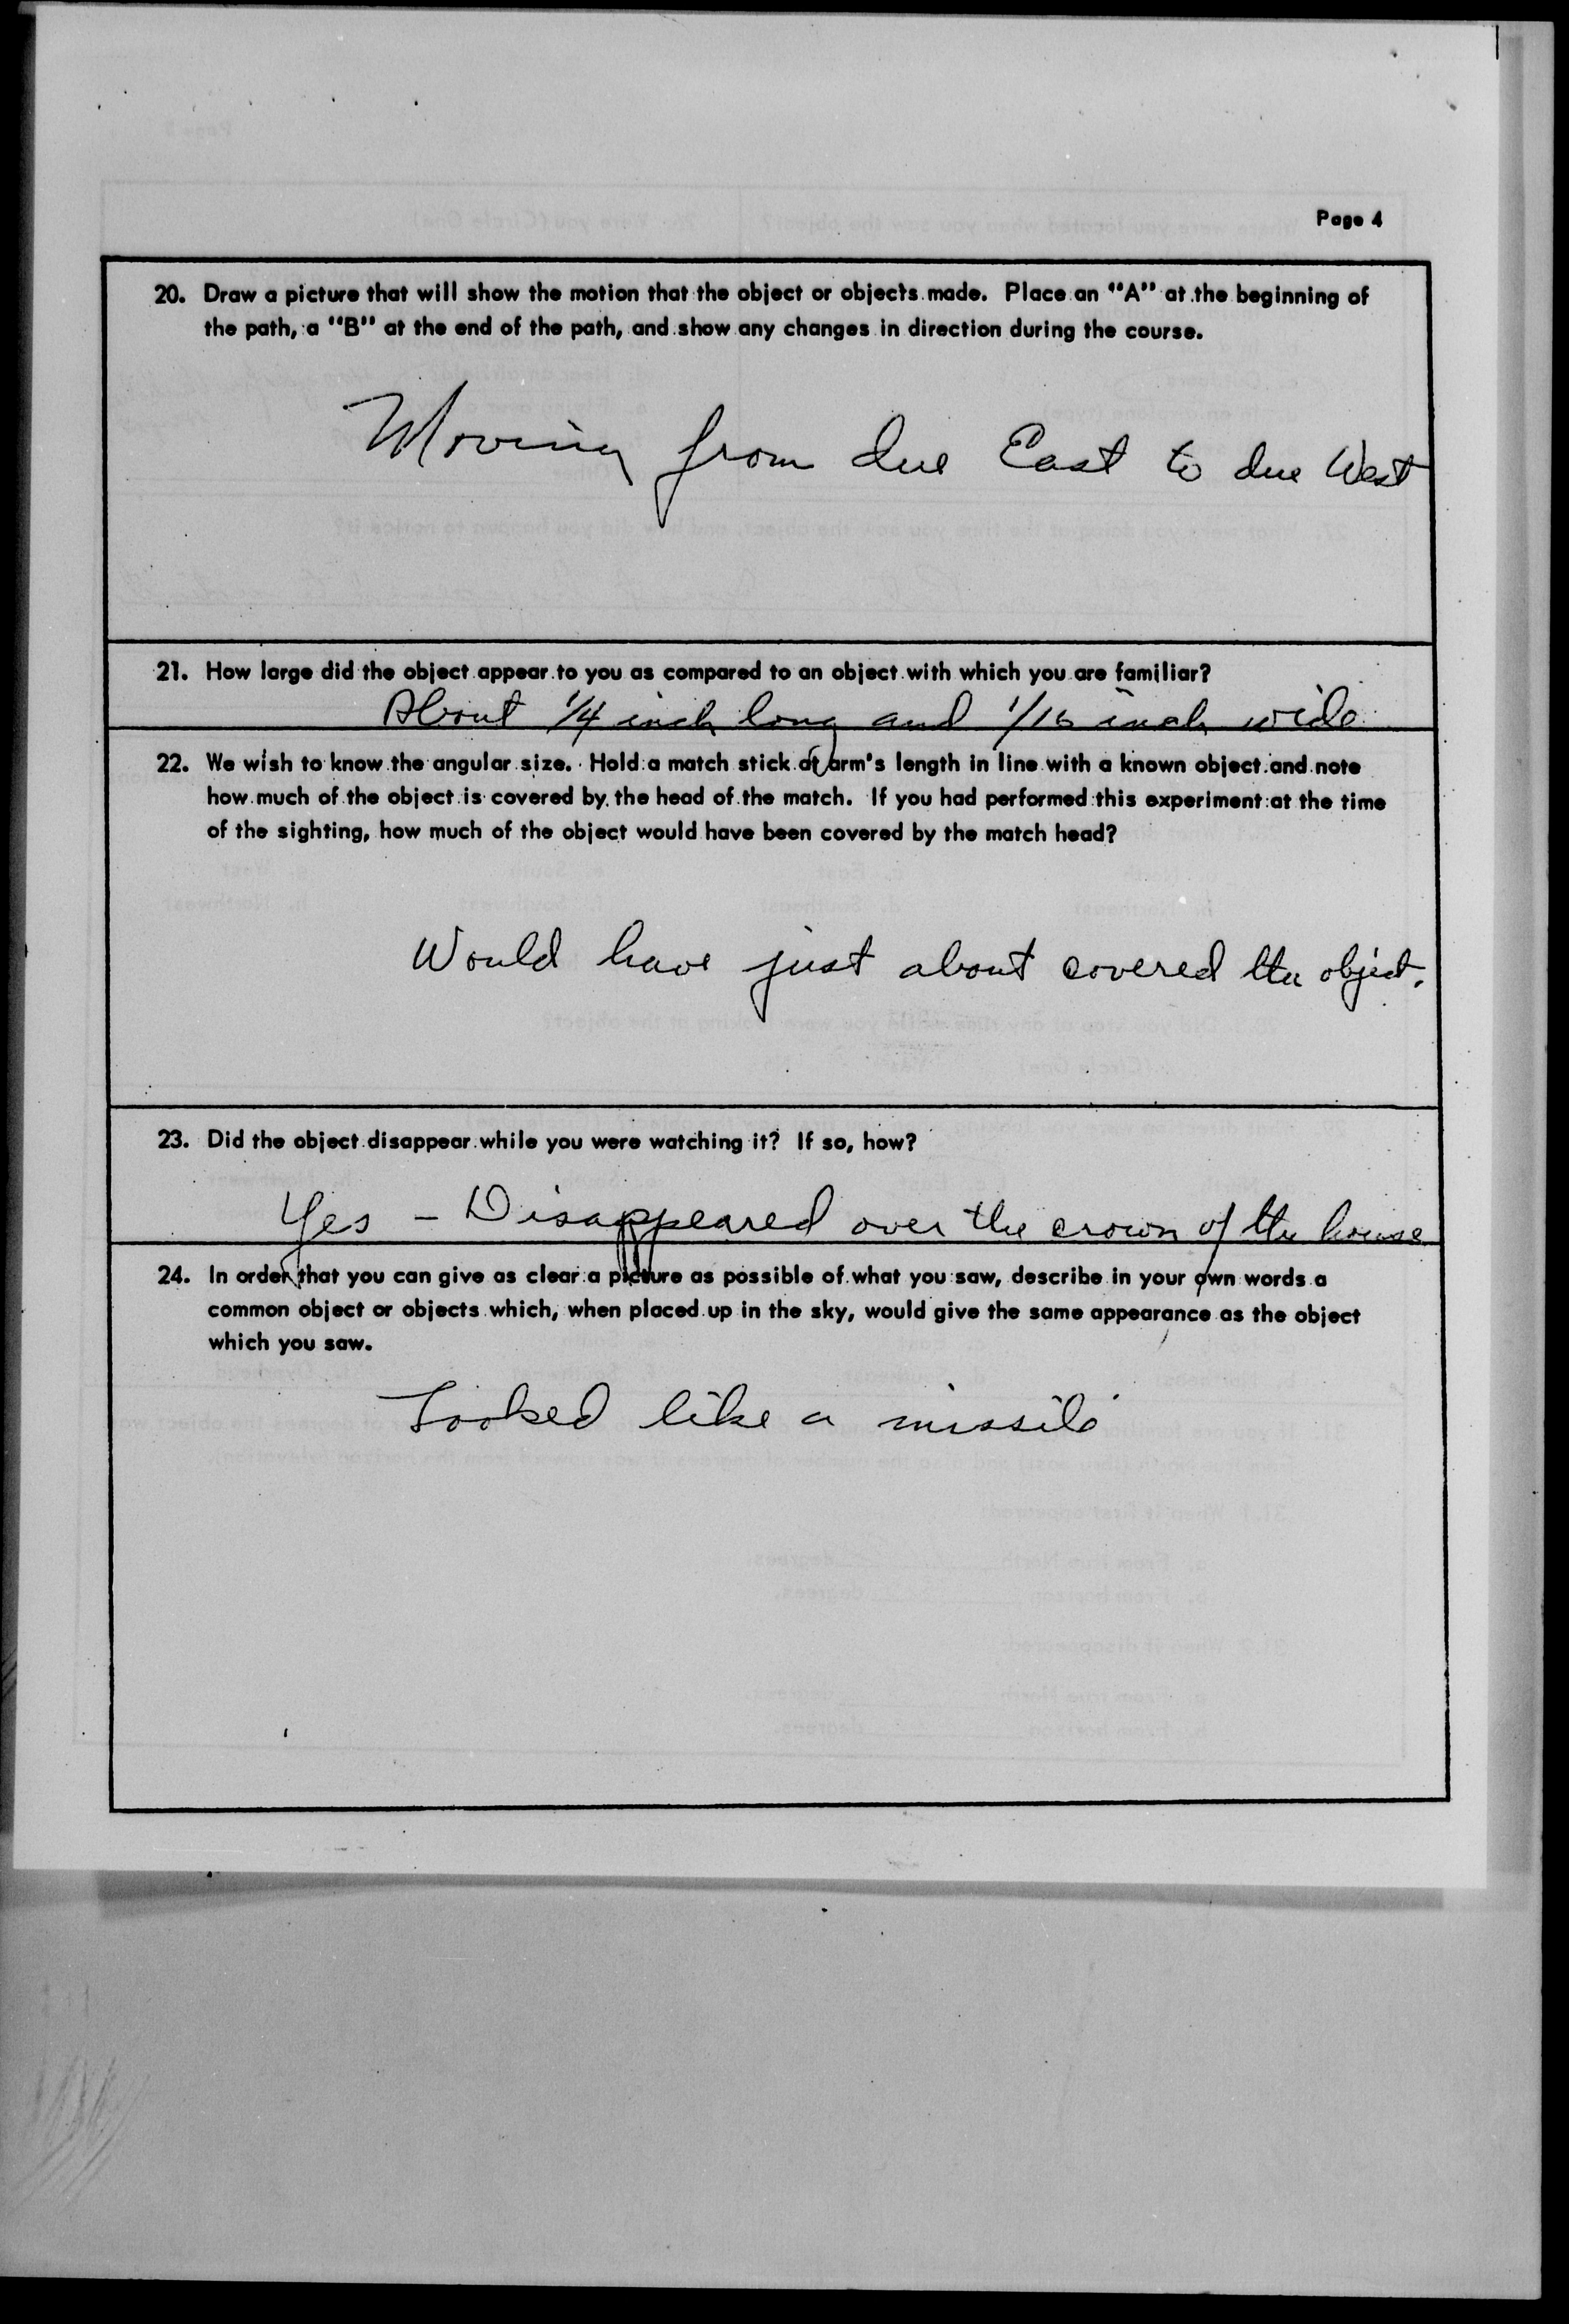 Page 4
20. Draw a picture that will show the motion that the object or objects made. Place an "A" at the beginning of
the path, a "B" at the end of the path, and show any changes in direction during the course.
Moving from due East to due West
21. How large did the object appear to you as compared to an object with which you are familiar?
About 1/4 inch long and 1/16 inch wide
22. We wish to know the angular size. Hold a match stick at arm's length in line with a known object and note
how much of the object is covered by the head of the match. If you had performed this experiment at the time
of the sighting, how much of the object would have been covered by the match head?
Would have just about covered the object.
23. Did the object disappear while you were watching it? If so, how?
Yes - Disappeared over the crown of the house
24. In order that you can give as clear a picture as possible of what you saw, describe in your own words a
common object or objects which, when placed up in the sky, would give the same appearance as the object
which you saw.
Looked like a missile